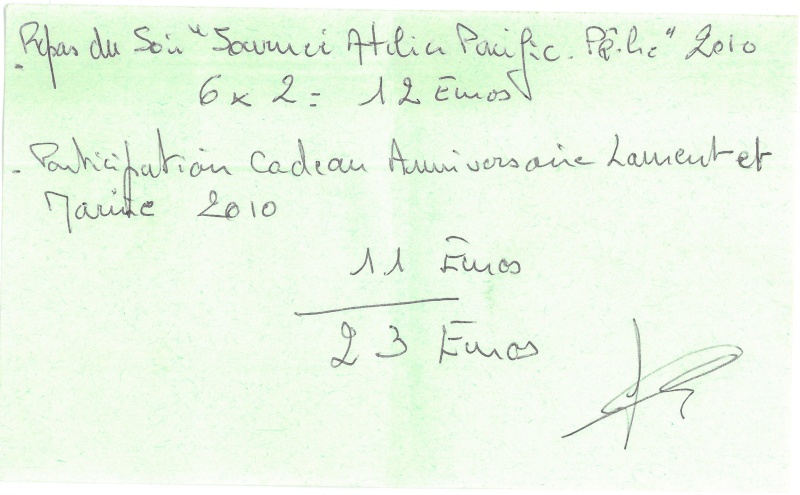 - Repas du Soir "Journée Atelier Pacific. Pêche" 2010
6 x 2 = 12 Euros
- Participation Cadeau Anniversaire Laurent et
Marine 2010
11 Euros
23 Euros